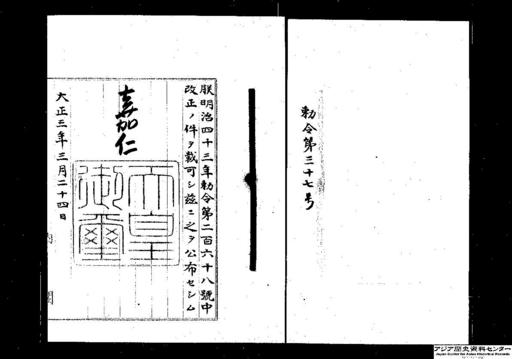 勅令第三十七号
朕明治四十三年勅令第二百六十八號中
改正ノ件ヲ裁可シ茲ニ之ヲ公布セシム
嘉仁
天皇
御璽
大正三年三月二十四日
内閣
アジア歴史資料センター
Japan Center for Asian Historical Records